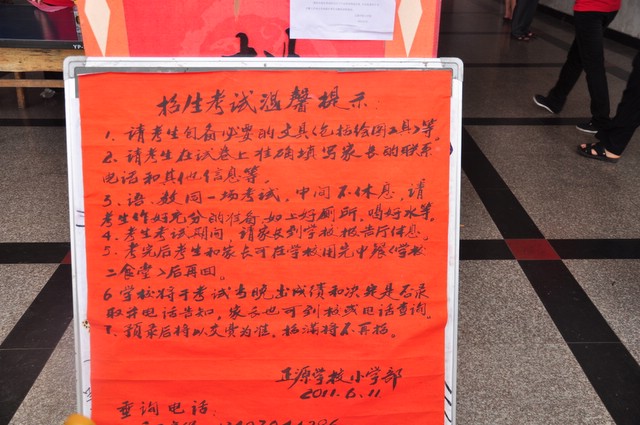 招生考试温馨提示
1. 请考生自备必要的文具(包括绘图工具)等。
2. 请考生在试卷上准确填写家长的联系
电话和其他信息等。
3. 语、数同一场考试，中间不休息，请
考生作好充分的准备，如上好厕所，喝好水等。
4. 考生考试期间，请家长到学校报告厅休息。
5. 考完后考生和家长可在学校用完中餐(学校
二食堂)后再回。
6. 学校将于考试当晚出成绩和决定是否录
取并电话告知，家长也可到校或电话查询。
7. 预录后将以交费为准。招满将不再招。
正源学校小学部
2011.6.11
查询电话：